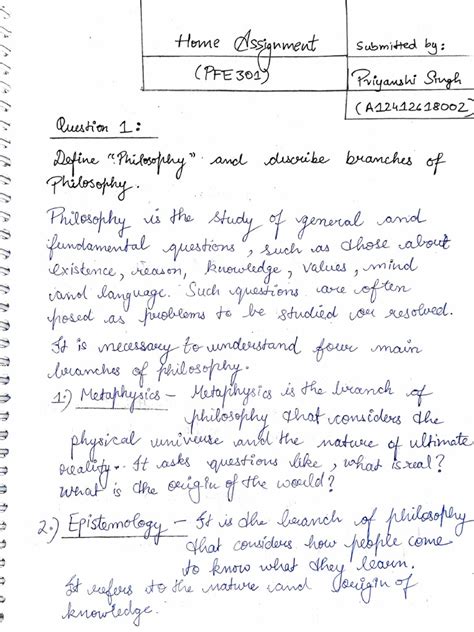 Home Assignment
(PFE301)
Submitted by:
Priyanshi Singh
(A12412618002)
Question 1:
Define "Philosophy" and describe branches of
Philosophy.
Philosophy is the study of general and
fundamental questions, such as those about
existence, reason, knowledge, values, mind
and language. Such questions are often
posed as problems to be studied or resolved.
It is necessary to understand four main
branches of philosophy.
1.) Metaphysics - Metaphysics is the branch of
philosophy that considers the
physical universe and the nature of ultimate
reality. It asks questions like, what is real?
What is the origin of the world?
2.) Epistemology - It is the branch of philosophy
that considers how people come
to know what they learn.
It refers to the nature and origin of
knowledge.